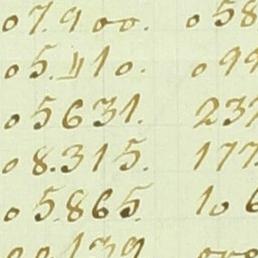 07.900. 058
05.110. 099
05631. 237
08.315. 177
05.865. 106
00139